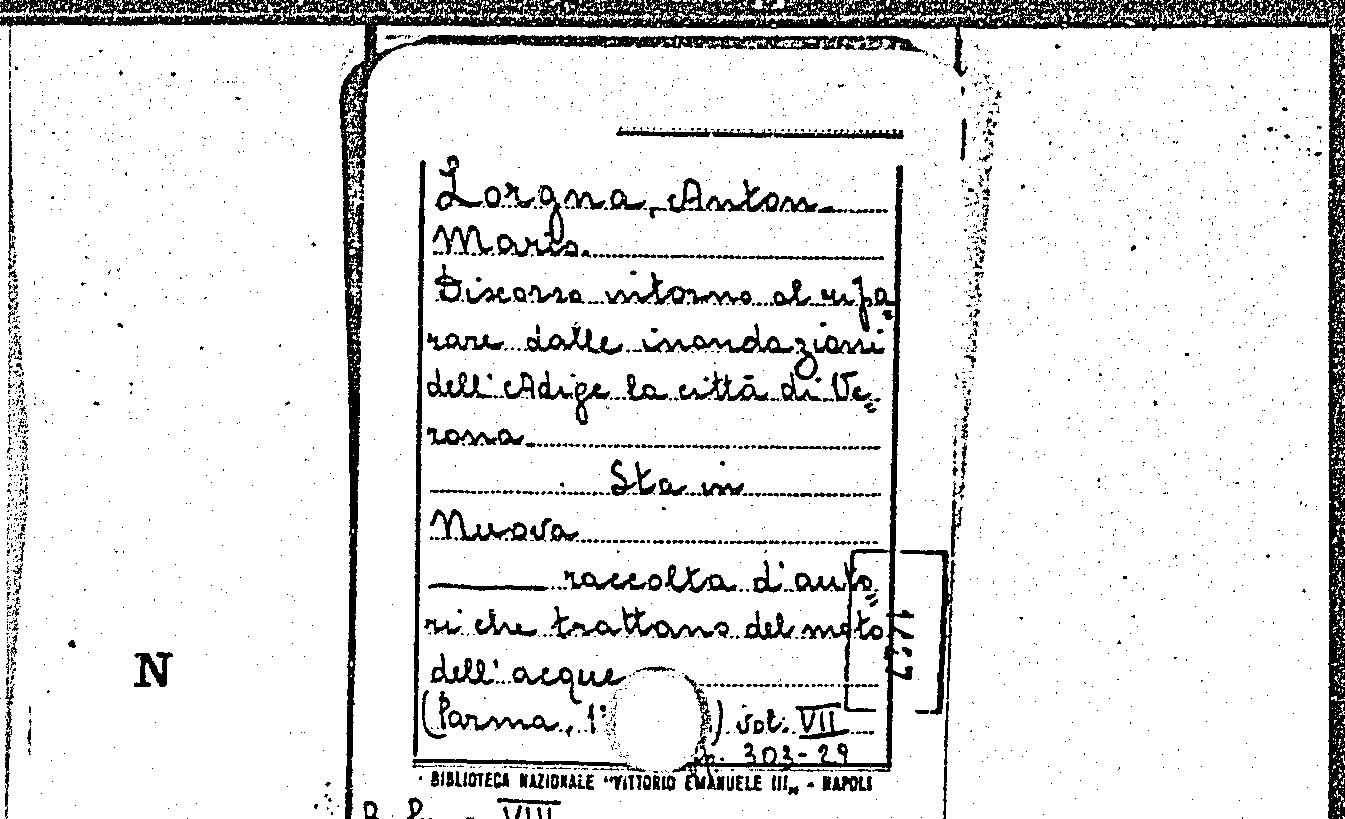 Lorgna, Anton
Mario.
Discorso intorno al ripa=
rare dalle inondazioni
dell'Adige la città di Ve=
rona
Sta in
Nuova
raccolta d'auto=
ri che trattano del moto
dell'acque
(Parma, 1) vol. VII
pp. 303-29
BIBLIOTECA NAZIONALE "VITTORIO EMANUELE III„ - NAPOLI
N
VIII